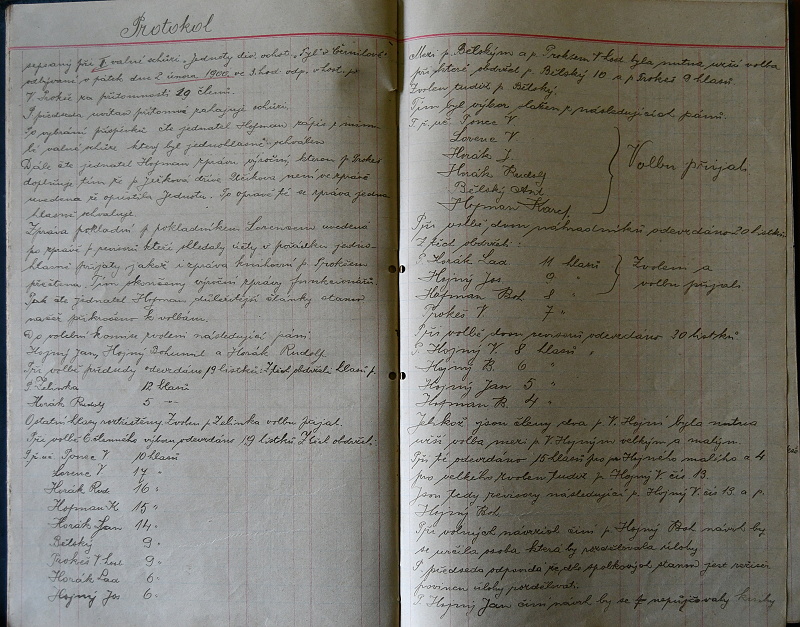 Protokol
sepsaný při I. valné schůzi „Jednoty div. ochot. „Tyl“ v Černilově“
odbývané v pátek dne 2. února 1900 ve 3. hod. odp. v host. p.
V. Prokše za přítomnosti 29 členů.
P. předseda uvítav přítomné zahajuje schůzi.
Po vybrání příspěvků čte jednatel Hofman zápis z minu-
lé valné schůze který byl jednohlasně schválen
Dále čte jednatel Hofman zprávu výroční kterou p. Prokeš
doplňuje tím že p. dříve není ve zprávě
uvedena že opustila Jednotu. Po opravě té se zpráva jedno
hlasně schvaluje.
Zpráva pokladní p. pokladníkem Lorencem uvedená
po zprávě p. revisorů kteří shledaly účty v pořádku jedno-
hlasně přijaty jakož i zpráva knihovní p. Prokšem
přečtena. Tím skončeny výroční zprávy funkcionářů.
Pak čte jednatel Hofman důležitější články stanov
načež přikročeno k volbám.
Do volební komise zvoleni následující páni
Hojný Jan, Hojný Bohumil a Horák Rudolf
Při volbě předsedy odevzdáno 19 lístků: Z těch obdrželi hlasů p.
P. Zelinka 12 hlasů
Horák Rudolf 5 "
Ostatní hlasy roztříštěny. Zvolen p. Zelinka volbu přijal.
Při volbě 6 členného výboru odevzdáno 19 lístků Z těch obdrželi:
Ponec V 10 hlasů
Lorenc V 17 "
Horák Rud. 16 "
Hofman K 15 "
Horák Jan 14 "
Bětský 9 "
Prokeš V. host 9 "
Horák Lad 6 "
Hojný Jos 6 "
Mezi p. Bětským a p. Prokšem V. host. byla nutna užší volba
při které obdržel p. Bětský 10 a p. Prokeš 9 hlasů.
Zvolen tudíž p. Bětský.
Tím byl výbor složen z následujících pánů.
Ponec V
Lorenc V
Horák J.
Horák Rudolf
Bětský Ant
Hofman Karel
Volbu přijali
Při volbě dvou náhradníků odevzdáno 20 lístků
Z těch obdrželi:
P. Horák Lad 11 hlasů
Hojný Jos 9 "
Hofman Boh. 8 "
Prokeš V. 7 "
Zvoleni a
volbu přijali
Při volbě dvou revisorů odevzdáno 20 lístků
P. Hojný V. 8 hlasů "
Hojný B. 6 "
Hojný Jan 5 "
Hofman B. 4 "
Jelikož jsou členy dva p. V. Hojní byla nutna
užší volba mezi p. V. Hojným velkým a malým.
Při té odevzdáno 15 hlasů pro p. Hojného malého a 4
pro velkého zvolen tudíž p. Hojný V. čís 13.
Jsou tedy revisory následující p. Hojný V. čís 13 a p.
Hojný Boh.
Při volných návrzích činí p. Hojný Boh návrh by
se určila osoba která by rozdělovala úlohy
P. předseda odpovídá že dle spolkových stanov jest režisér
povinen úlohy rozdělovati.
P. Hojný Jan činí návrh by se nepůjčovaly knihy